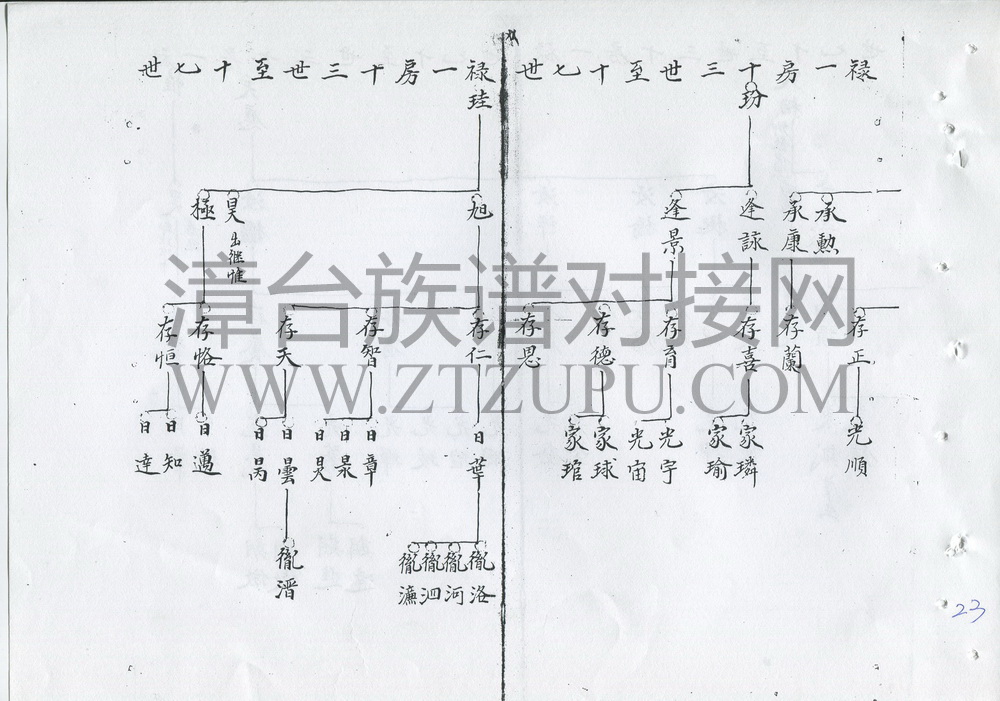 禄一房十三世至十七世
玢
承勲
承康
逢詠
逢景
存正
存蘭
存喜
存育
存德
存恩
光順
家璘
家瑜
光宇
光宙
家球
家琯
禄一房十三世至十七世
珪
旭
昊 出继惟
極
存仁
存智
存天
存恪
存恒
日華
日章
日杲
日昊
日曇
日昺
日邁
日知
日達
胤洛
胤河
胤泗
胤濂
胤溍
漳台族谱对接网
WWW.ZTZUPU.COM
23